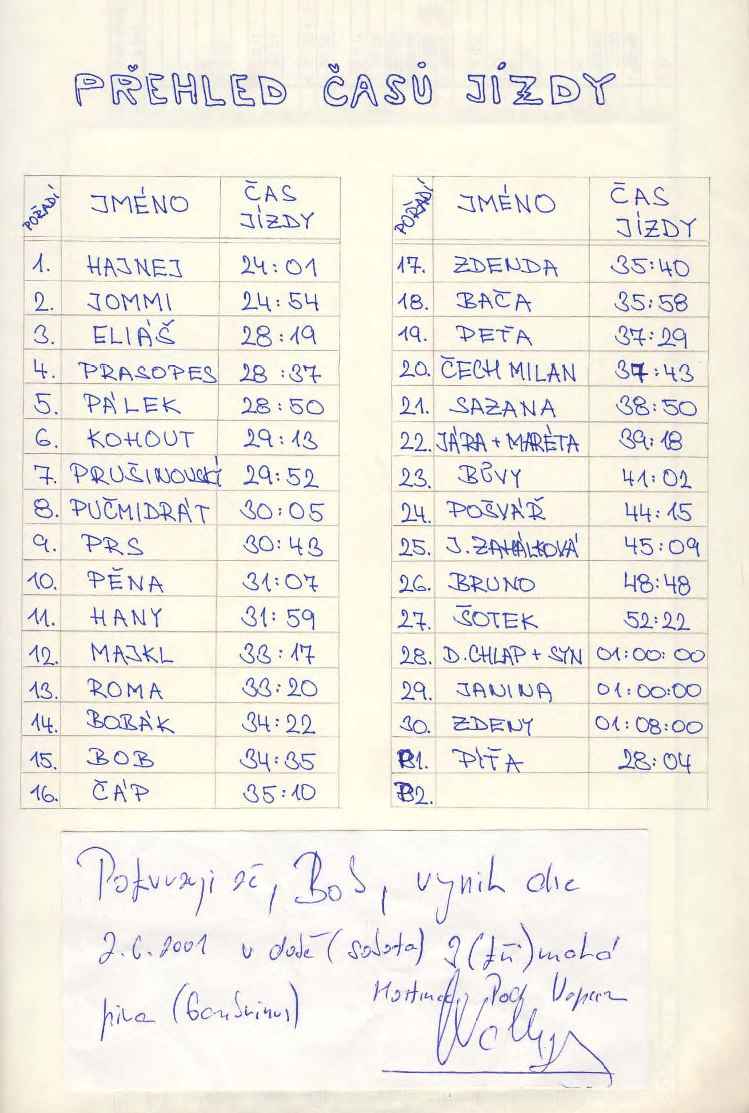 PŘEHLED ČASŮ JÍZDY
POŘADÍ JMÉNO ČAS JÍZDY
1. HAJNEJ 24:01
2. JOMMI 24:54
3. ELIÁŠ 28:19
4. PRASOPES 28:37
5. PÁLEK 28:50
6. KOHOUT 29:13
7. PRUŠINOVSKÝ 29:52
8. PUČMIDRÁT 30:05
9. PRS 30:43
10. PĚNA 31:07
11. HANY 31:59
12. MAJKL 33:17
13. ROMA 33:20
14. BOBÁK 34:22
15. BOB 34:35
16. ČÁP 35:10
POŘADÍ JMÉNO ČAS JÍZDY
17. ZDENDA 35:40
18. BAČA 35:58
19. PEŤA 37:29
20. ČECH MILAN 37:43
21. SAZANA 38:50
22. JÁRA + MARĚTA 39:18
23. BŮVY 41:02
24. POŠVÁŘ 44:15
25. J. ZAHÁLKOVÁ 45:09
26. BRUNO 48:48
27. ŠOTEK 52:22
28. D. CHLAP + SYN 01:00:00
29. JANINA 01:00:00
30. ZDENY 01:08:00
B1. PÍŤA 28:04
B2.
Potvrzuji že, Bob, vypil dne
2.6.2001 v době (sobota) 3 (tři) malá
piva (Gambrinus)